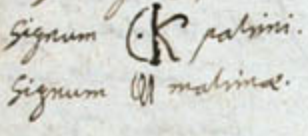 Signum K patrini.
Signum matrinæ.